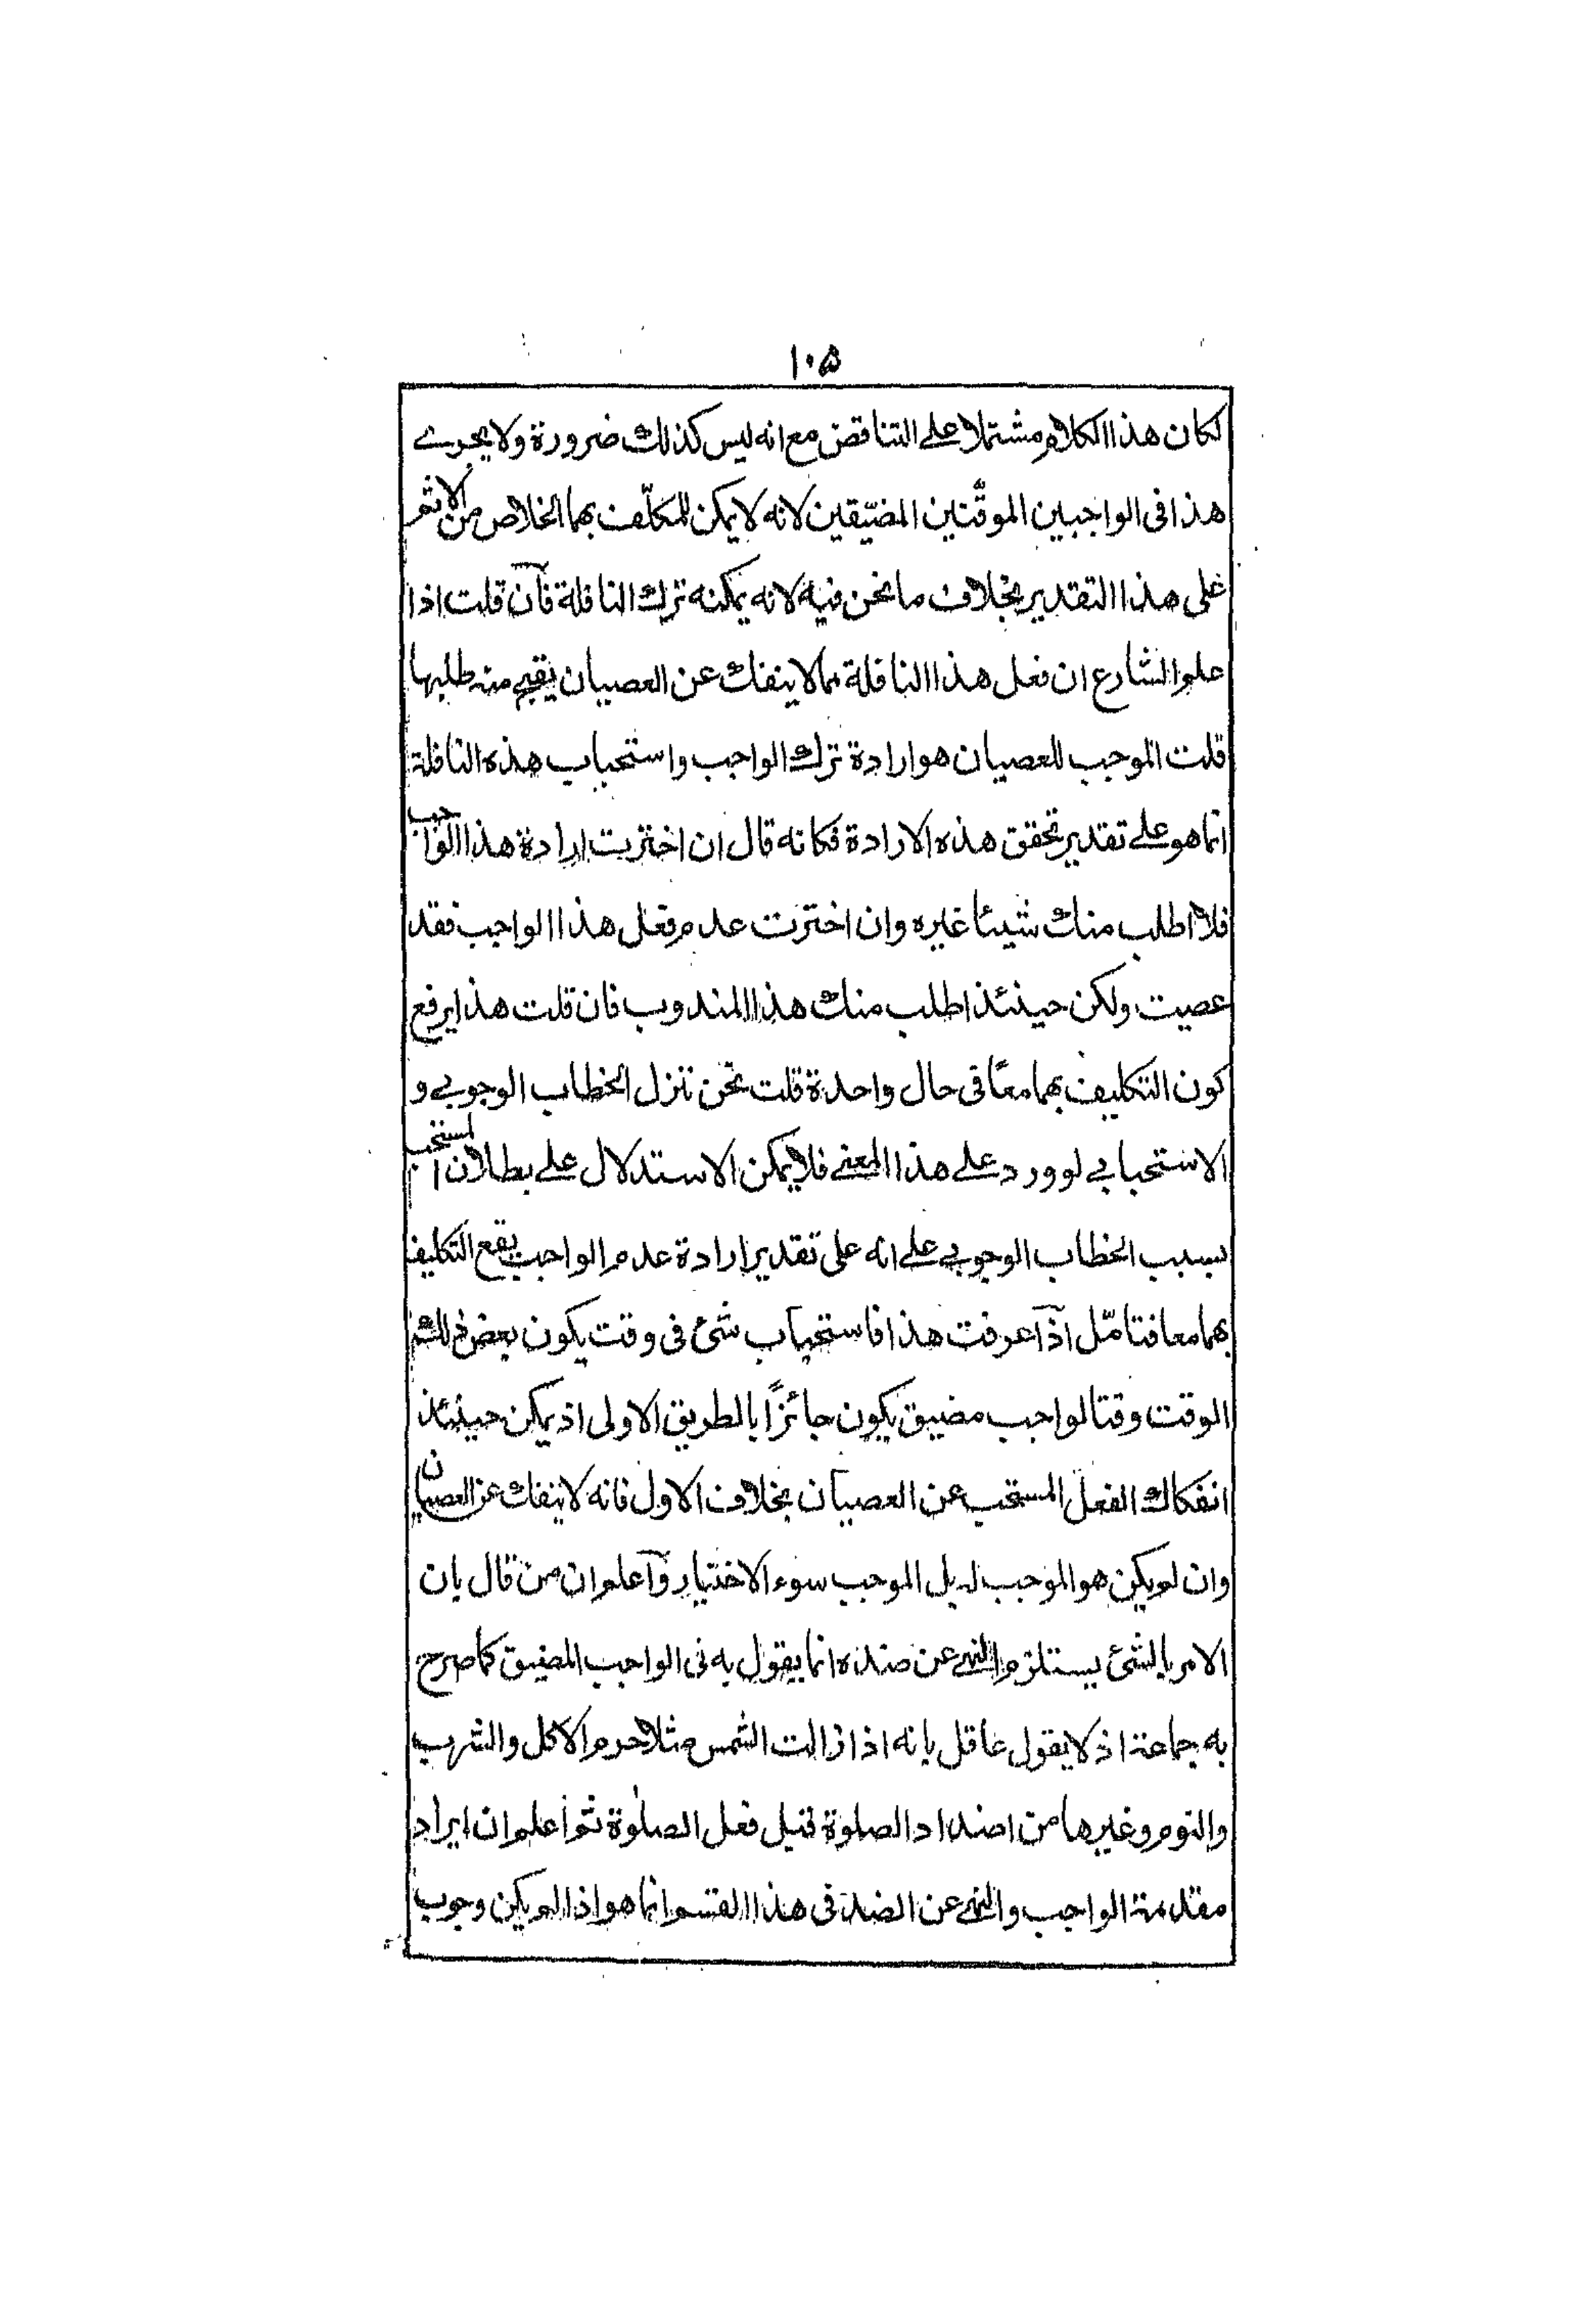 ١٠٥
لكان هذا الكلام مشتملا على التناقض مع انه ليس كذلك ضرورة ولا يجرے
هذا فى الواجبين الموقّتين المضيّقين لانه لا يمكن للمكلّف بهما الخلاص من الاثم
على هذا التقدير بخلاف ما نحن فيه لانه يمكنه ترك النافلة فآن قلت اذا
علم الشارع ان فعل هذا النافلة مما لا ينفك عن العصيان يقبح منه طلبها
قلت الموجب للعصيان هو ارادة ترك الواجب واستحباب هذه النافلة
انما هو على تقدير تحقق هذه الارادة فكانه قال ان اخترت ارادة هذا الواجب
فلا اطلب منك شيئا غيره وان اخترت عدم فعل هذا الواجب فقد
عصيت ولكن حينئذ اطلب منك هذا المندوب فان قلت هذا يرفع
كون التكليف بهما معًا فى حال واحدة قلت نحن ننزل الخطاب الوجوبے و
الاستحبابے لو ورد علے هذا المعنے فلا يمكن الاستدلال علے بطلان المستحب
بسبب الخطاب الوجوبے علے انه على تقدير ارادة عدم الواجب يقع التكليف
بهما معا فتامّل اذآ عرفت هذا فاستحباب شئ فى وقت يكون بعض ذلك
الوقت وقتا لواجب مضيق يكون جائزًا بالطريق الاولى اذ يمكن حينئذ
انفكاك الفعل المستحب عن العصيان بخلاف الاول فانه لا ينفك عن العصيان
وان لم يكن هو الموجب له بل الموجب سوء الاختيار وآعلم ان من قال بان
الامر بالشئ يستلزم النهے عن ضده انما يقول به فى الواجب المضيق كما صرح
به جماعة اذ لا يقول عاقل بانه اذا زالت الشمس مثلا حرم الاكل والشرب
والنوم وغيرها من اضداد الصلوة قبل فعل الصلوة ثم اعلم ان ايراد
مقدمة الواجب والنهے عن الضد فى هذا القسم انما هو اذا لم يكن وجوب